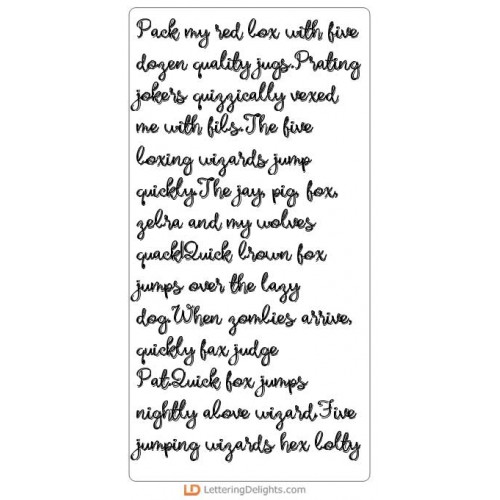 Pack my red box with five
dozen quality jugs.Prating
jokers quizzically vexed
me with fils.The five
boxing wizards jump
quickly.The jay, pig, fox,
zebra and my wolves
quack!Quick brown fox
jumps over the lazy
dog.When zombies arrive,
quickly fax judge
Pat.Quick fox jumps
nightly above wizard.Five
jumping wizards hex bolty
LD LetteringDelights.com